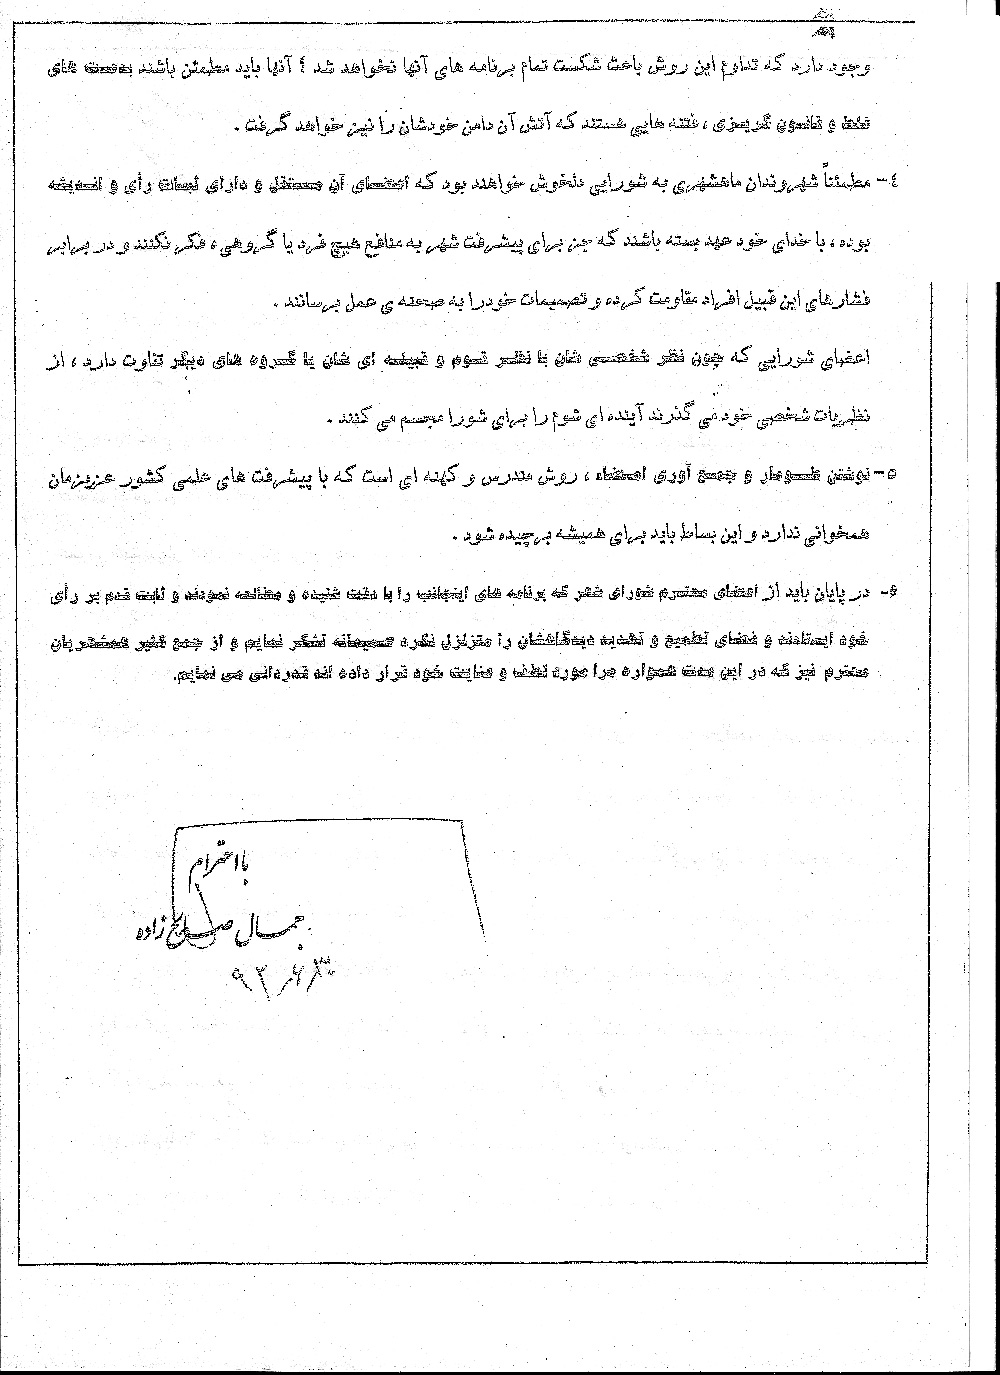 وجود دارد که تداوم این روش باعث شکست تمام برنامه های آنها نخواهد شد ؟ آنها باید مطمئن باشند پوست های
نفت و قانون گریزی ، فتنه هایی هستند که آتش آن دامن خودشان را نیز خواهد گرفت .
٤- مطمئناً شهروندان ماهشهری به شورایی دلخوش خواهند بود که اعضای آن مستقل و دارای ثبات رأی و اندیشه
بوده ، با خدای خود عهد بسته باشند که جز برای پیشرفت شهر به منافع هیچ فرد یا گروهی ، فکر نکنند و در برابر
فشارهای این قبیل افراد مقاومت کرده و تصمیمات خود را به صحنه ی عمل برسانند .
اعضای شورایی که چون نظر شخصی شان با نظر قوم و قبیله ای شان یا گروه های دیگر تفاوت دارد ، از
نظریات شخصی خود می گذرند آینده ای شوم را برای شورا مجسم می کنند .
٥- نوشتن طومار و جمع آوری امضاء ، روش مندرس و کهنه ای است که با پیشرفت های علمی کشور عزیزمان
همخوانی ندارد و این بساط باید برای همیشه برچیده شود .
٦- در پایان باید از اعضای محترم شورای شهر که برنامه های اینجانب را با دقت شنیده و مطالعه نمودند و ثابت قدم بر رأی
خود ایستادند و فضای تطمیع و تهدید دیدگاهشان را متزلزل نکرد صمیمانه تشکر نمایم و از جمع کثیر همشهریان
محترم نیز که در این مدت همواره مرا مورد لطف و عنایت خود قرار داده اند قدردانی می نمایم.
با احترام
جمال صالح زاده
۹۳/۶/۳۰